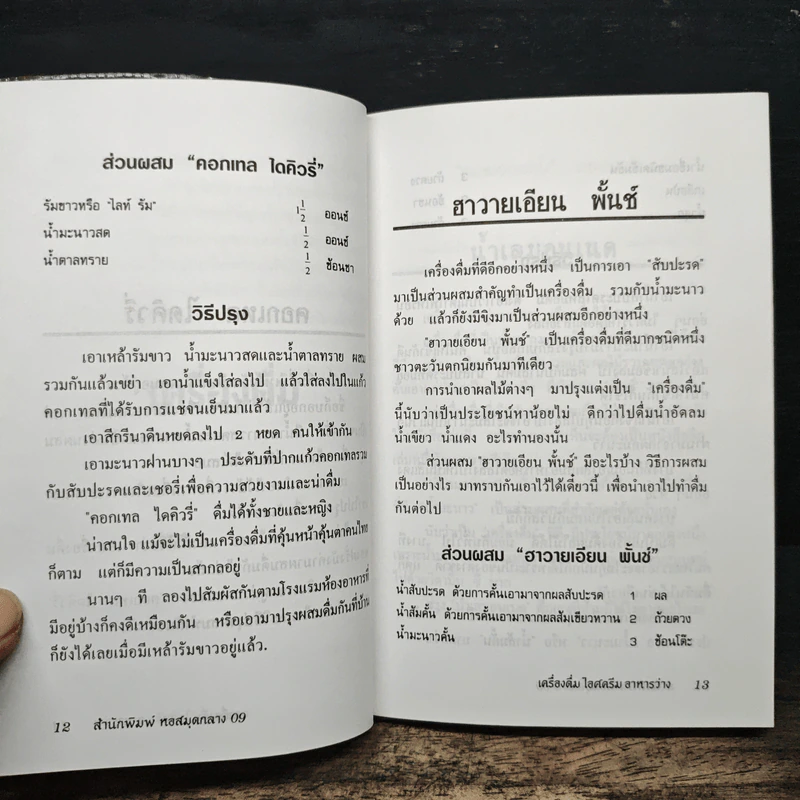 ส่วนผสม "คอกเทล ไดคิวรี่"
รัมขาวหรือ "ไลท์ รัม" 1 1/2 ออนซ์
น้ำมะนาวสด 1/2 ออนซ์
น้ำตาลทราย 1/2 ช้อนชา
วิธีปรุง
เอาเหล้ารัมขาว น้ำมะนาวสดและน้ำตาลทราย ผสม
รวมกันแล้วเขย่า เอาน้ำแข็งใส่ลงไป แล้วใส่ลงไปในแก้ว
คอกเทลที่ได้รับการแช่จนเย็นมาแล้ว
เอาสีกรีนาดีนหยดลงไป 2 หยด คนให้เข้ากัน
เอามะนาวฝานบางๆ ประดับที่ปากแก้วคอกเทลรวม
กับสับปะรดและเชอรี่เพื่อความสวยงามและน่าดื่ม
"คอกเทล ไดคิวรี่" ดื่มได้ทั้งชายและหญิง
น่าสนใจ แม้จะไม่เป็นเครื่องดื่มที่คุ้นหน้าคุ้นตาคนไทย
ก็ตาม แต่ก็มีความเป็นสากลอยู่
นานๆ ที ลองไปสัมผัสกันตามโรงแรมห้องอาหารที่
มีอยู่บ้างก็คงดีเหมือนกัน หรือเอามาปรุงผสมดื่มกันที่บ้าน
ก็ยังได้เลยเมื่อมีเหล้ารัมขาวอยู่แล้ว.
12 สำนักพิมพ์ หอสมุดกลาง 09
ฮาวายเอียน พั้นช์
เครื่องดื่มที่ดีอีกอย่างหนึ่ง เป็นการเอา "สับปะรด"
มาเป็นส่วนผสมสำคัญทำเป็นเครื่องดื่ม รวมกับน้ำมะนาว
ด้วย แล้วก็ยังมีขิงมาเป็นส่วนผสมอีกอย่างหนึ่ง
"ฮาวายเอียน พั้นช์" เป็นเครื่องดื่มที่ดีมากชนิดหนึ่ง
ชาวตะวันตกนิยมกันมาทีเดียว
การนำเอาผลไม้ต่างๆ มาปรุงแต่งเป็น "เครื่องดื่ม"
นี้นับว่าเป็นประโยชน์หาน้อยไม่ ดีกว่าไปดื่มน้ำอัดลม
น้ำเขียว น้ำแดง อะไรทำนองนั้น
ส่วนผสม "ฮาวายเอียน พั้นช์" มีอะไรบ้าง วิธีการผสม
เป็นอย่างไร มาทราบกันเอาไว้ได้เดี๋ยวนี้ เพื่อนำเอาไปทำดื่ม
กันต่อไป
ส่วนผสม "ฮาวายเอียน พั้นช์"
น้ำสับปะรด ด้วยการคั้นเอามาจากผลสับปะรด 1 ผล
น้ำส้มคั้น ด้วยการคั้นเอามาจากผลส้มเขียวหวาน 2 ถ้วยตวง
น้ำมะนาวคั้น 3 ช้อนโต๊ะ
เครื่องดื่ม ไอศครีม อาหารว่าง 13